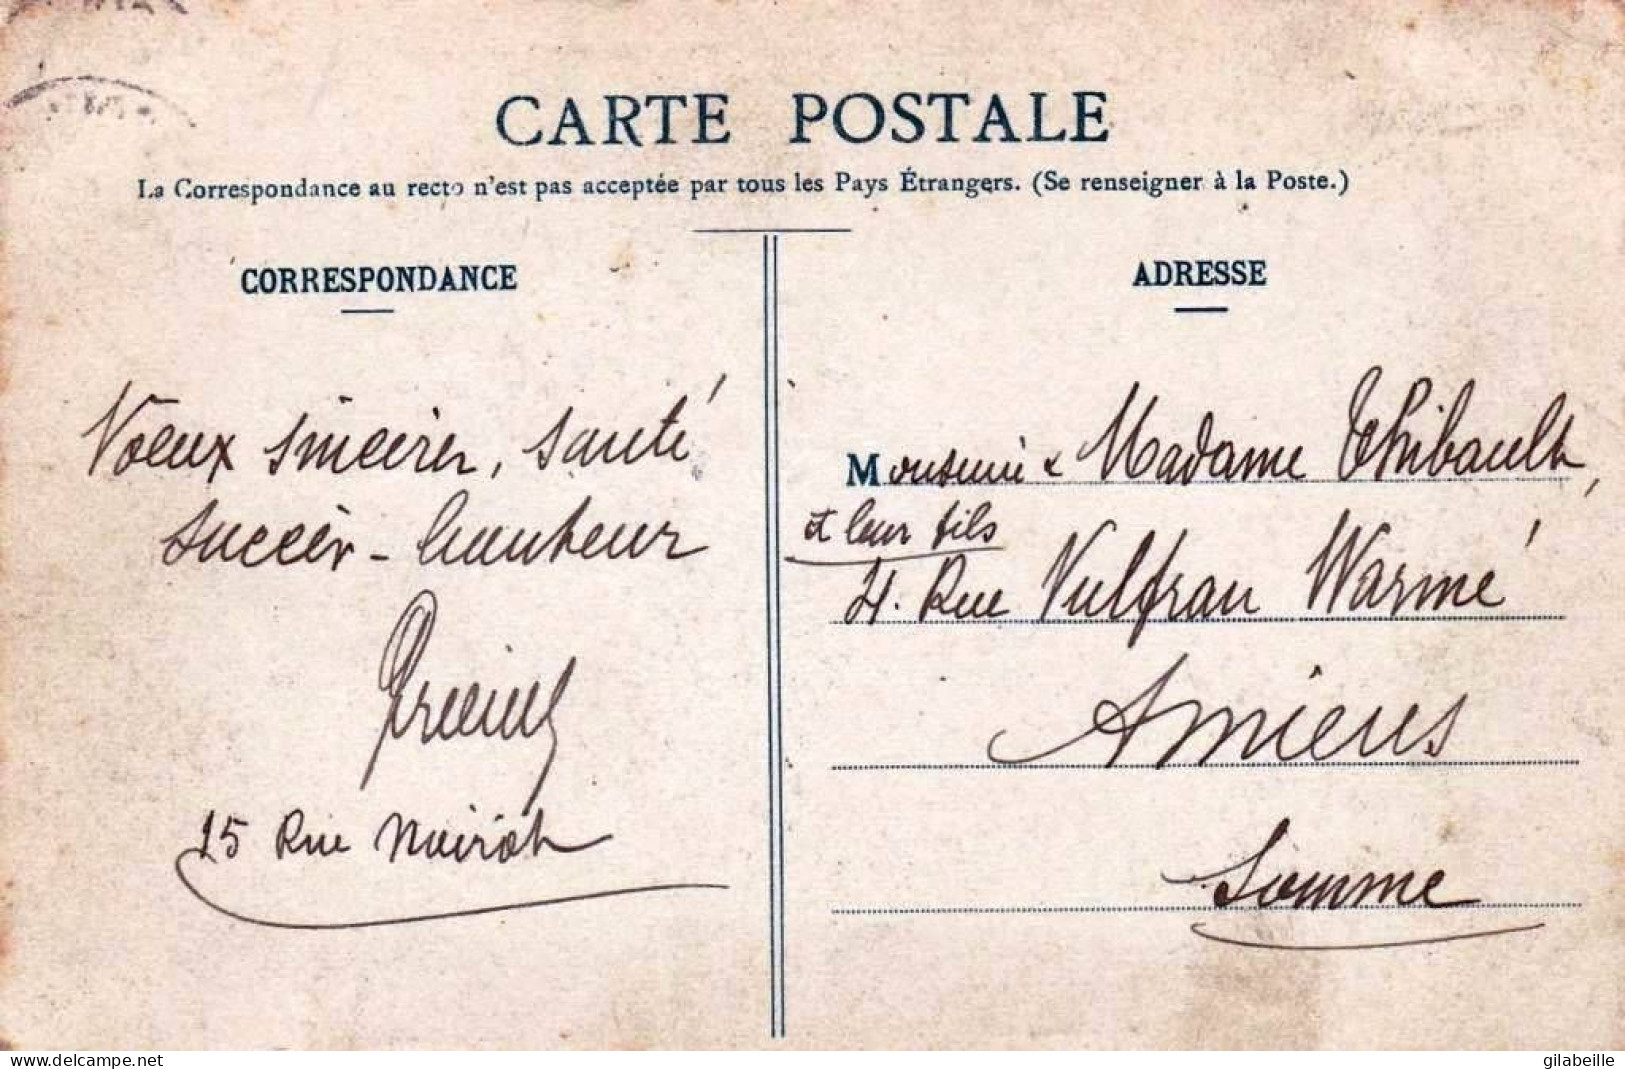 CARTE POSTALE
La Correspondance au recto n'est pas acceptée par tous les Pays Étrangers. (Se renseigner à la Poste.)
CORRESPONDANCE
Voeux sincères, santé
succès - bonheur
15 Rue Noirot
ADRESSE
Monsieur & Madame Thibault,
et leur fils
Rue Vulfran Warmé
Amiens
Somme
www.delcampe.net
gilabeille